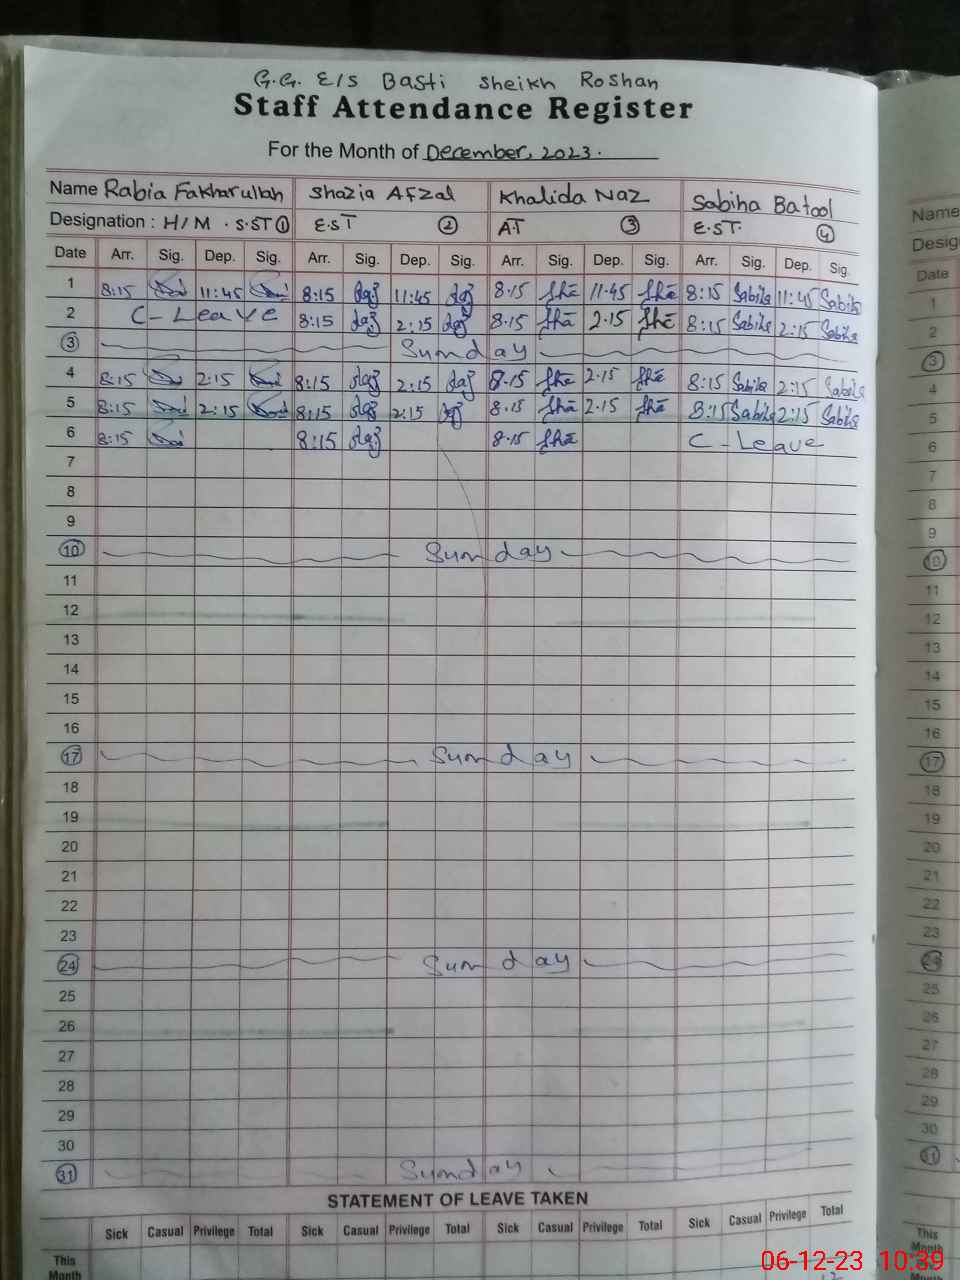 G.G. E/S Basti Sheikh Roshan
Staff Attendance Register
For the Month of December, 2023.
Name Rabia Fakharullah Shazia Afzal Khalida Naz Sabiha Batool
Designation : H/M . S.ST 1 E.ST 2 A.T 3 E.ST. 4
Date Arr. Sig. Dep. Sig. Arr. Sig. Dep. Sig. Arr. Sig. Dep. Sig. Arr. Sig. Dep. Sig.
1 8:15 11:45 8:15 11:45 8.15 11.45 8:15 Sabiha 11:45 Sabiha
2 C-Leave 8:15 2:15 8.15 2.15 8:15 Sabiha 2:15 Sabiha
3 Sunday
4 8:15 2:15 8:15 2:15 8.15 2.15 8:15 Sabiha 2:15 Sabiha
5 8:15 2:15 8:15 2:15 8.15 2.15 8:15 Sabiha 2:15 Sabiha
6 8:15 8:15 8.15 C-Leave
7
8
9
10 Sunday
11
12
13
14
15
16
17 Sunday
18
19
20
21
22
23
24 Sunday
25
26
27
28
29
30
31 Sunday
STATEMENT OF LEAVE TAKEN
Sick Casual Privilege Total Sick Casual Privilege Total Sick Casual Privilege Total Sick Casual Privilege Total
This Month
Name
Desig
Date
1
2
3
4
5
6
7
8
9
10
11
12
13
14
15
16
17
18
19
20
21
22
23
24
25
26
27
28
29
30
31
This
Month
06-12-23 10:39